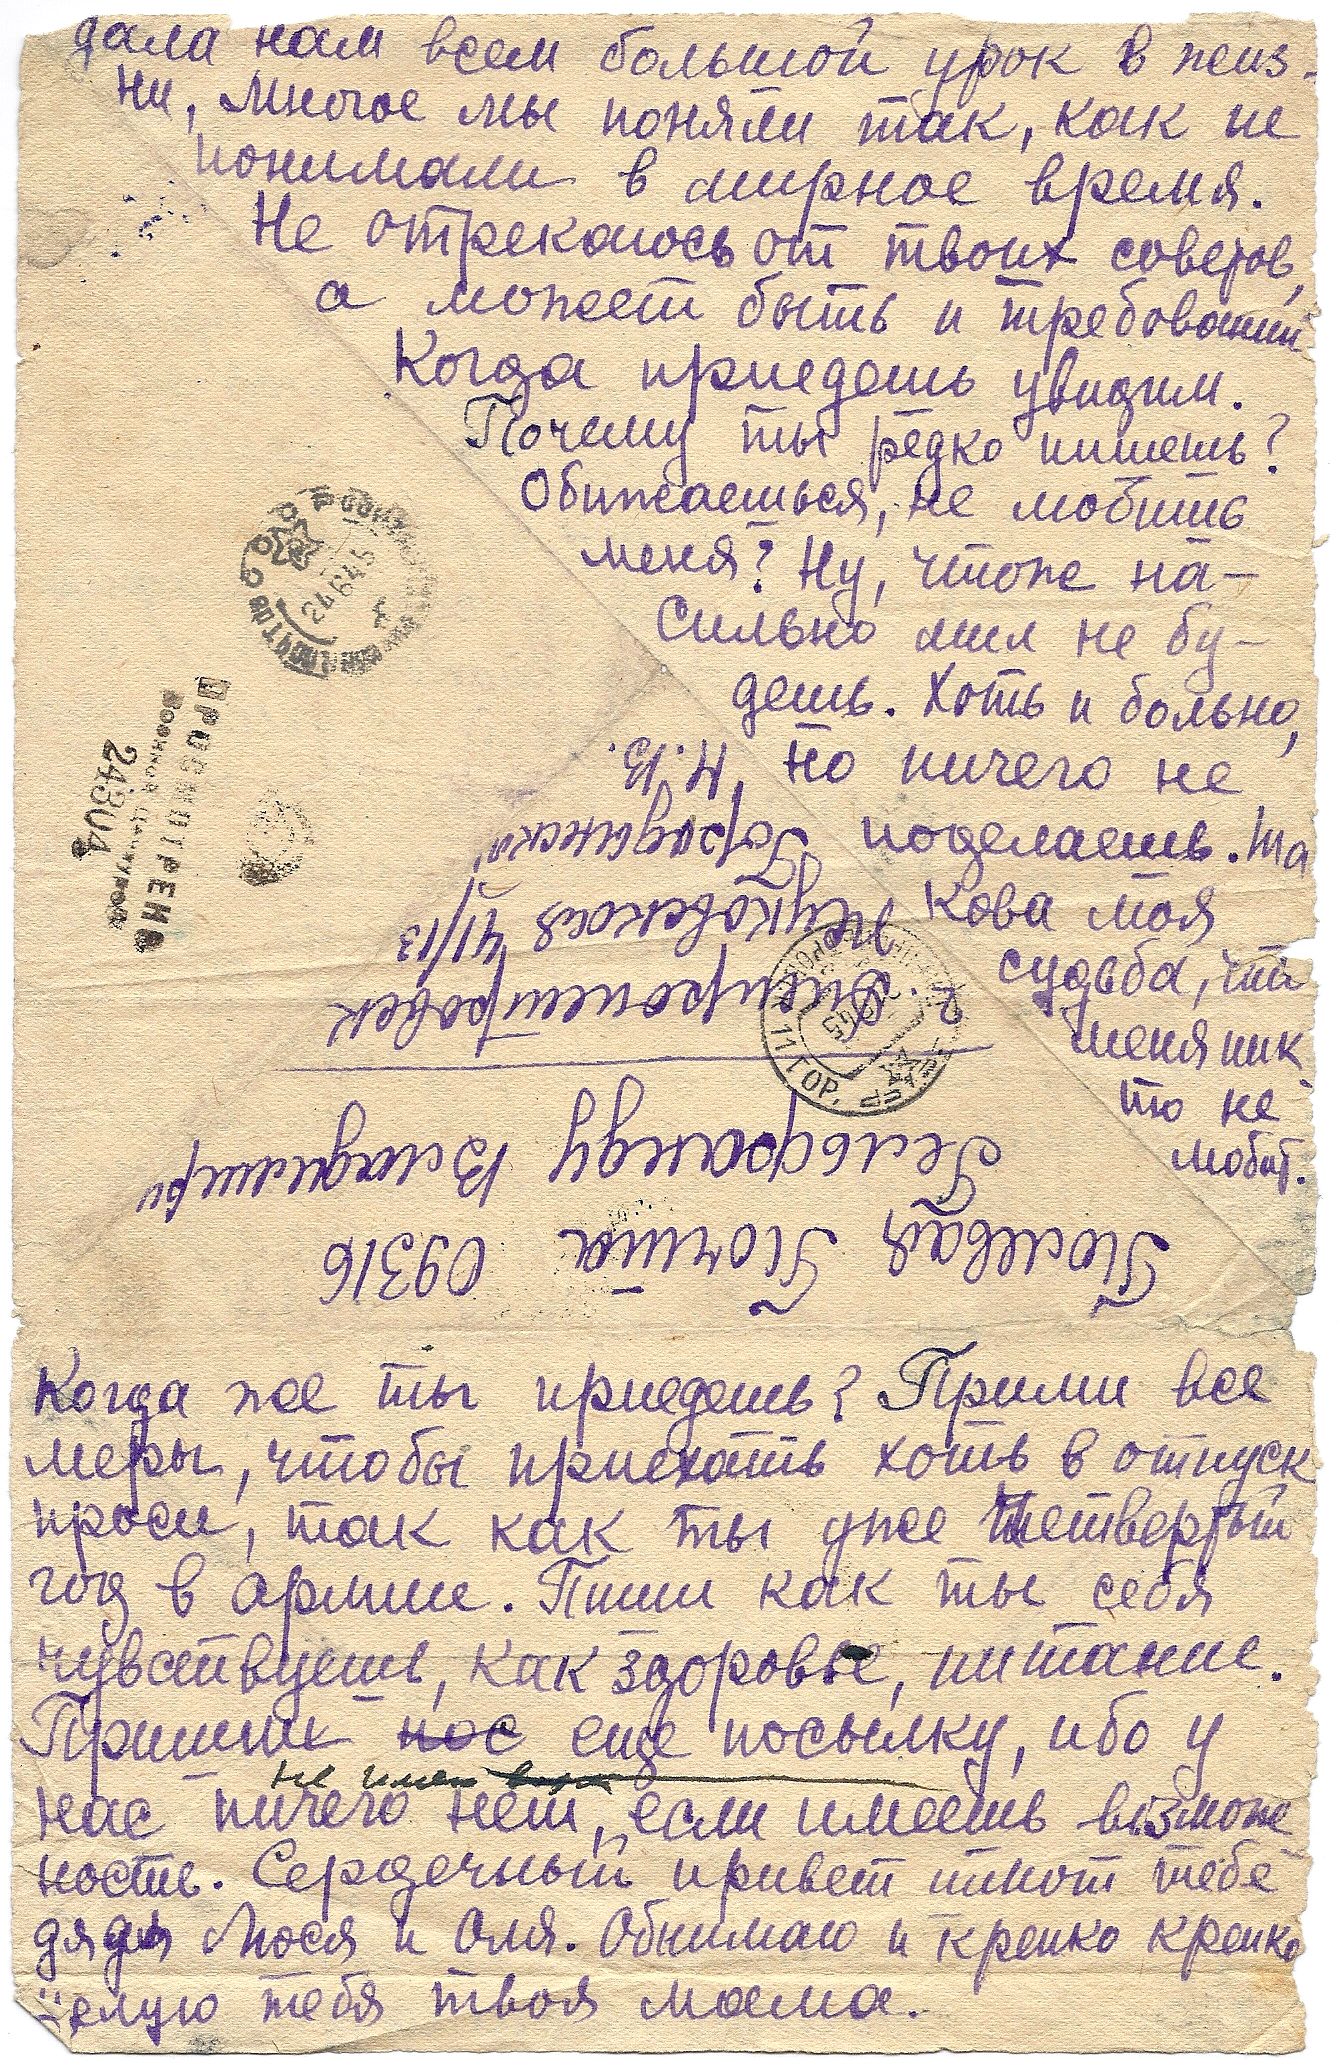 дала нам всем большой урок в жиз-
ни, многое мы поняли так, как не
понимали в мирное время.
Не отрекаюсь от твоих советов,
а может быть и требований
Когда приедешь увидим.
Почему ты редко пишешь?
Обижаешься, не любишь
меня? Ну, чтоже на-
сильно мил не бу-
дешь. Хоть и больно,
но ничего не
поделаешь. Та
кова моя
судьба, что
меня ник
то не
любит.
Полевая Почта 09316
Гельфанду Владимиру
г. Днепропетровск
Жуковская 41/13
Городынская Н.В.
ПРОСМОТРЕНО
Военной Цензурой
24304
11 ГОР.
Когда же ты приедешь? Прими все
меры, чтобы приехать хоть в отпуск
проси, так как ты уже четвертый
год в армии. Пиши как ты себя
чувствуешь, как здоровье, питание.
Пришли нас еще посылку, ибо у
нас ничего нет, если имеешь возмож
ность. Сердечный привет шлют тебе
дядя Люся и Оля. Обнимаю и крепко крепко
целую тебя твоя мама.